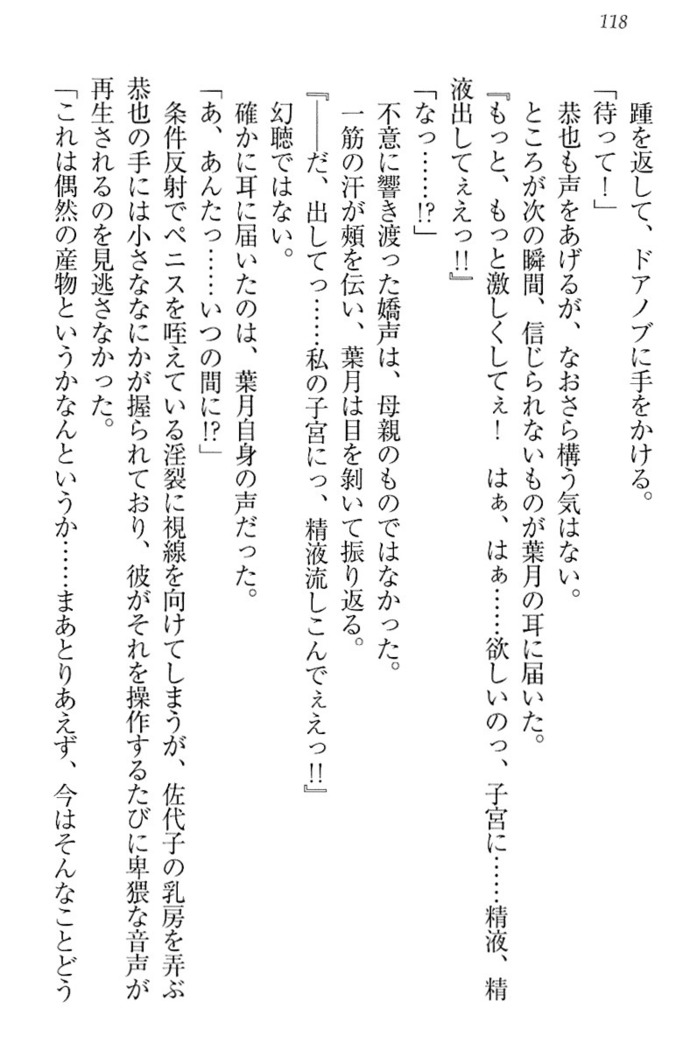 118
踵を返して、ドアノブに手をかける。
「待って！」
恭也も声をあげるが、なおさら構う気はない。
ところが次の瞬間、信じられないものが葉月の耳に届いた。
『もっと、もっと激しくしてぇ！　はぁ、はぁ……欲しいのっ、子宮に……精液、精
液出してぇえっ!!』
「なっ……!?」
不意に響き渡った嬌声は、母親のものではなかった。
一筋の汗が頰を伝い、葉月は目を剝いて振り返る。
『――だ、出してっ……私の子宮にっ、精液流しこんでぇえっ!!』
幻聴ではない。
確かに耳に届いたのは、葉月自身の声だった。
「あ、あんたっ……いつの間に!?」
条件反射でペニスを咥えている淫裂に視線を向けてしまうが、佐代子の乳房を弄ぶ
恭也の手には小さななにかが握られており、彼がそれを操作するたびに卑猥な音声が
再生されるのを見逃さなかった。
「これは偶然の産物というかなんというか……まあとりあえず、今はそんなことどう